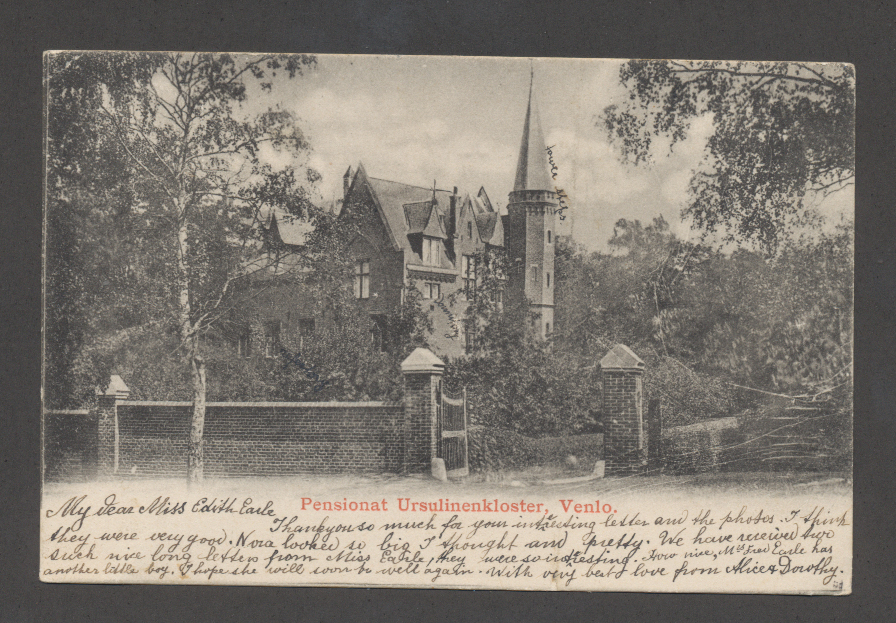 Pensionat Ursulinenkloster, Venlo.
My dear Miss Edith Earle
Thank you so much for your interesting letter and the photos. I think
they were very good. Nora looked so big I thought and pretty. We have received two
such nice long letters from Miss Earle, they were so interesting. How nice, Mrs Fred Earle has
another little boy. I hope she will soon be well again. With very best love from Alice & Dorothy.